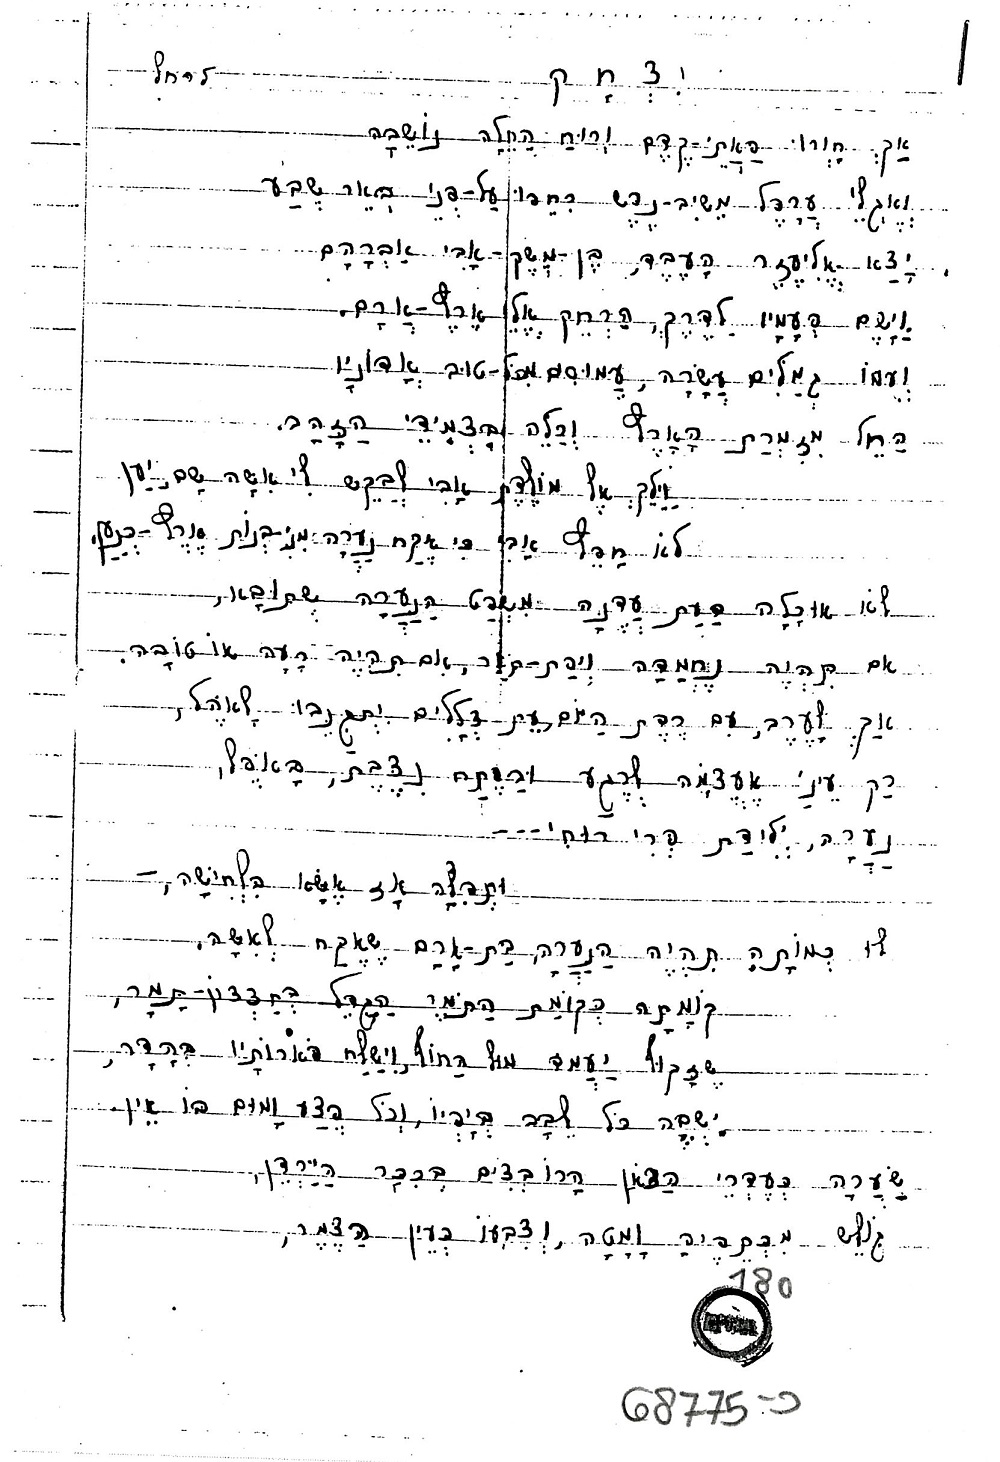 יִצְחָק
לרחל
אַךְ חָוְרוּ פַּאֲתֵי-קֶדֶם וְרוּחַ הֵחֵלָּה נוֹשֶׁבָה
וְאֶגְלֵי עֲרָפֶל מֵשִׁיב-נֶפֶשׁ רִחֲפוּ עַל-פְּנֵי בְּאֵר שֶׁבַע
יָצָא אֱלִיעֶזֶר הָעֶבֶד, בֶּן-מֶשֶׁק-אָבִי אַבְרָהָם
וַיָּשֶׂם פְּעָמָיו לַדֶּרֶךְ, הַרְחֵק אֱלֵי אֶרֶץ-אֲרָם.
וְעִמּוֹ גְמַלִּים עֲשָׂרָה, עֲמוּסִים מִכָּל-טוּב אֲדוֹנָיו
הָחֵל מִזִּמְרַת הָאָרֶץ וְכַלֵּה בִּצְמִידֵי הַזָּהָב.
וַיֵּלֶךְ אֶל מוֹלֶדֶת אָבִי לְבַקֵּשׁ לִי אִשָּׁה שָׁם, יַעַן
לֹא חָפֵץ אָבִי כִּי אֶקַּח נַעֲרָה מִנִּי-בְּנוֹת אֶרֶץ-כְּנַעַן.
לֹא אוּכָלָה כָּעֵת עֲדֶנָּה מִשְׁפַּט הַנַּעֲרָה שֶׁתּוּבָא,
אִם תִּהְיֶה נֶחֱמָדָה וִיפַת-תֹּאַר, אִם תִּהְיֶה רָעָה אוֹ טוֹבָה.
אַךְ לָעֶרֶב, עִם רֶדֶת הַיּוֹם, עֵת צְלָלִים יִתְגַּנְּבוּ לָאֹהֶל,
רַק עֵינַי אֶעֱצָמָה לְרֶגַע וּבַפֶּתַח נִצֶּבֶת, בָּאֹפֶל,
נַעֲרָה, יְלִידַת פְּרִי רוּחִי---
וּתְפִלָּה אָז אֶשָּׂא בִּלְחִישָׁה, –
לוּ כְּמוֹתָהּ תִּהְיֶה הַנַּעֲרָה, בַּת-אֲרָם שֶׁאֶקַּח לְאִשָּׁה.
קוֹמָתָהּ כְּקוֹמַת הַתֹּמֶר הַגָּדֵל בְּחַצְצוֹן-תָּמָר,
שֶׁזָּקוּף יַעֲמֹד מוּל הַחוֹל, וִישַׁלַּח פֹּארוֹתָיו בְּהָדָר,
יִשְׁבֶּה כֹּל לֵבָב בְּיָפְיוֹ, וְכֹל פֶּצַע וָמוּם בּוֹ אֵין.
שְׂעָרָהּ כְּעֶדְרֵי הַצֹּאן הָרוֹבְצִים בְּכִכַּר הַיַּרְדֵּן,
גּוֹלֵשׁ מִכְּתֵפֶיהָ וָמַטָּה, וְצִבְעוֹ כְּעֵין הַצֶּמֶר,
180
כ-68775